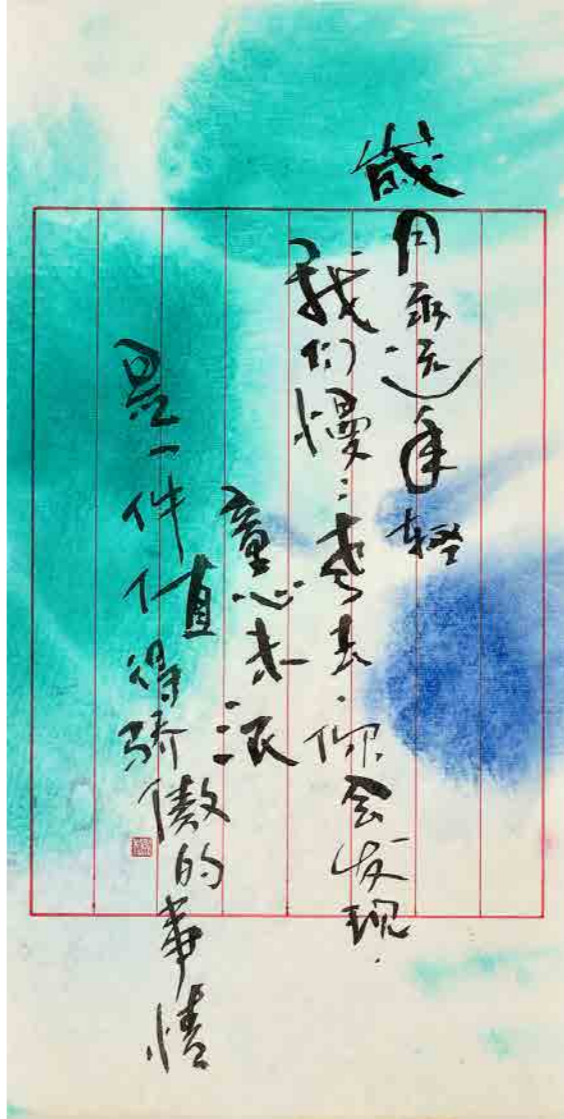 歲月永远年轻
我们慢:老去.你会发现.
童心未泯
是一件值得骄傲的事情